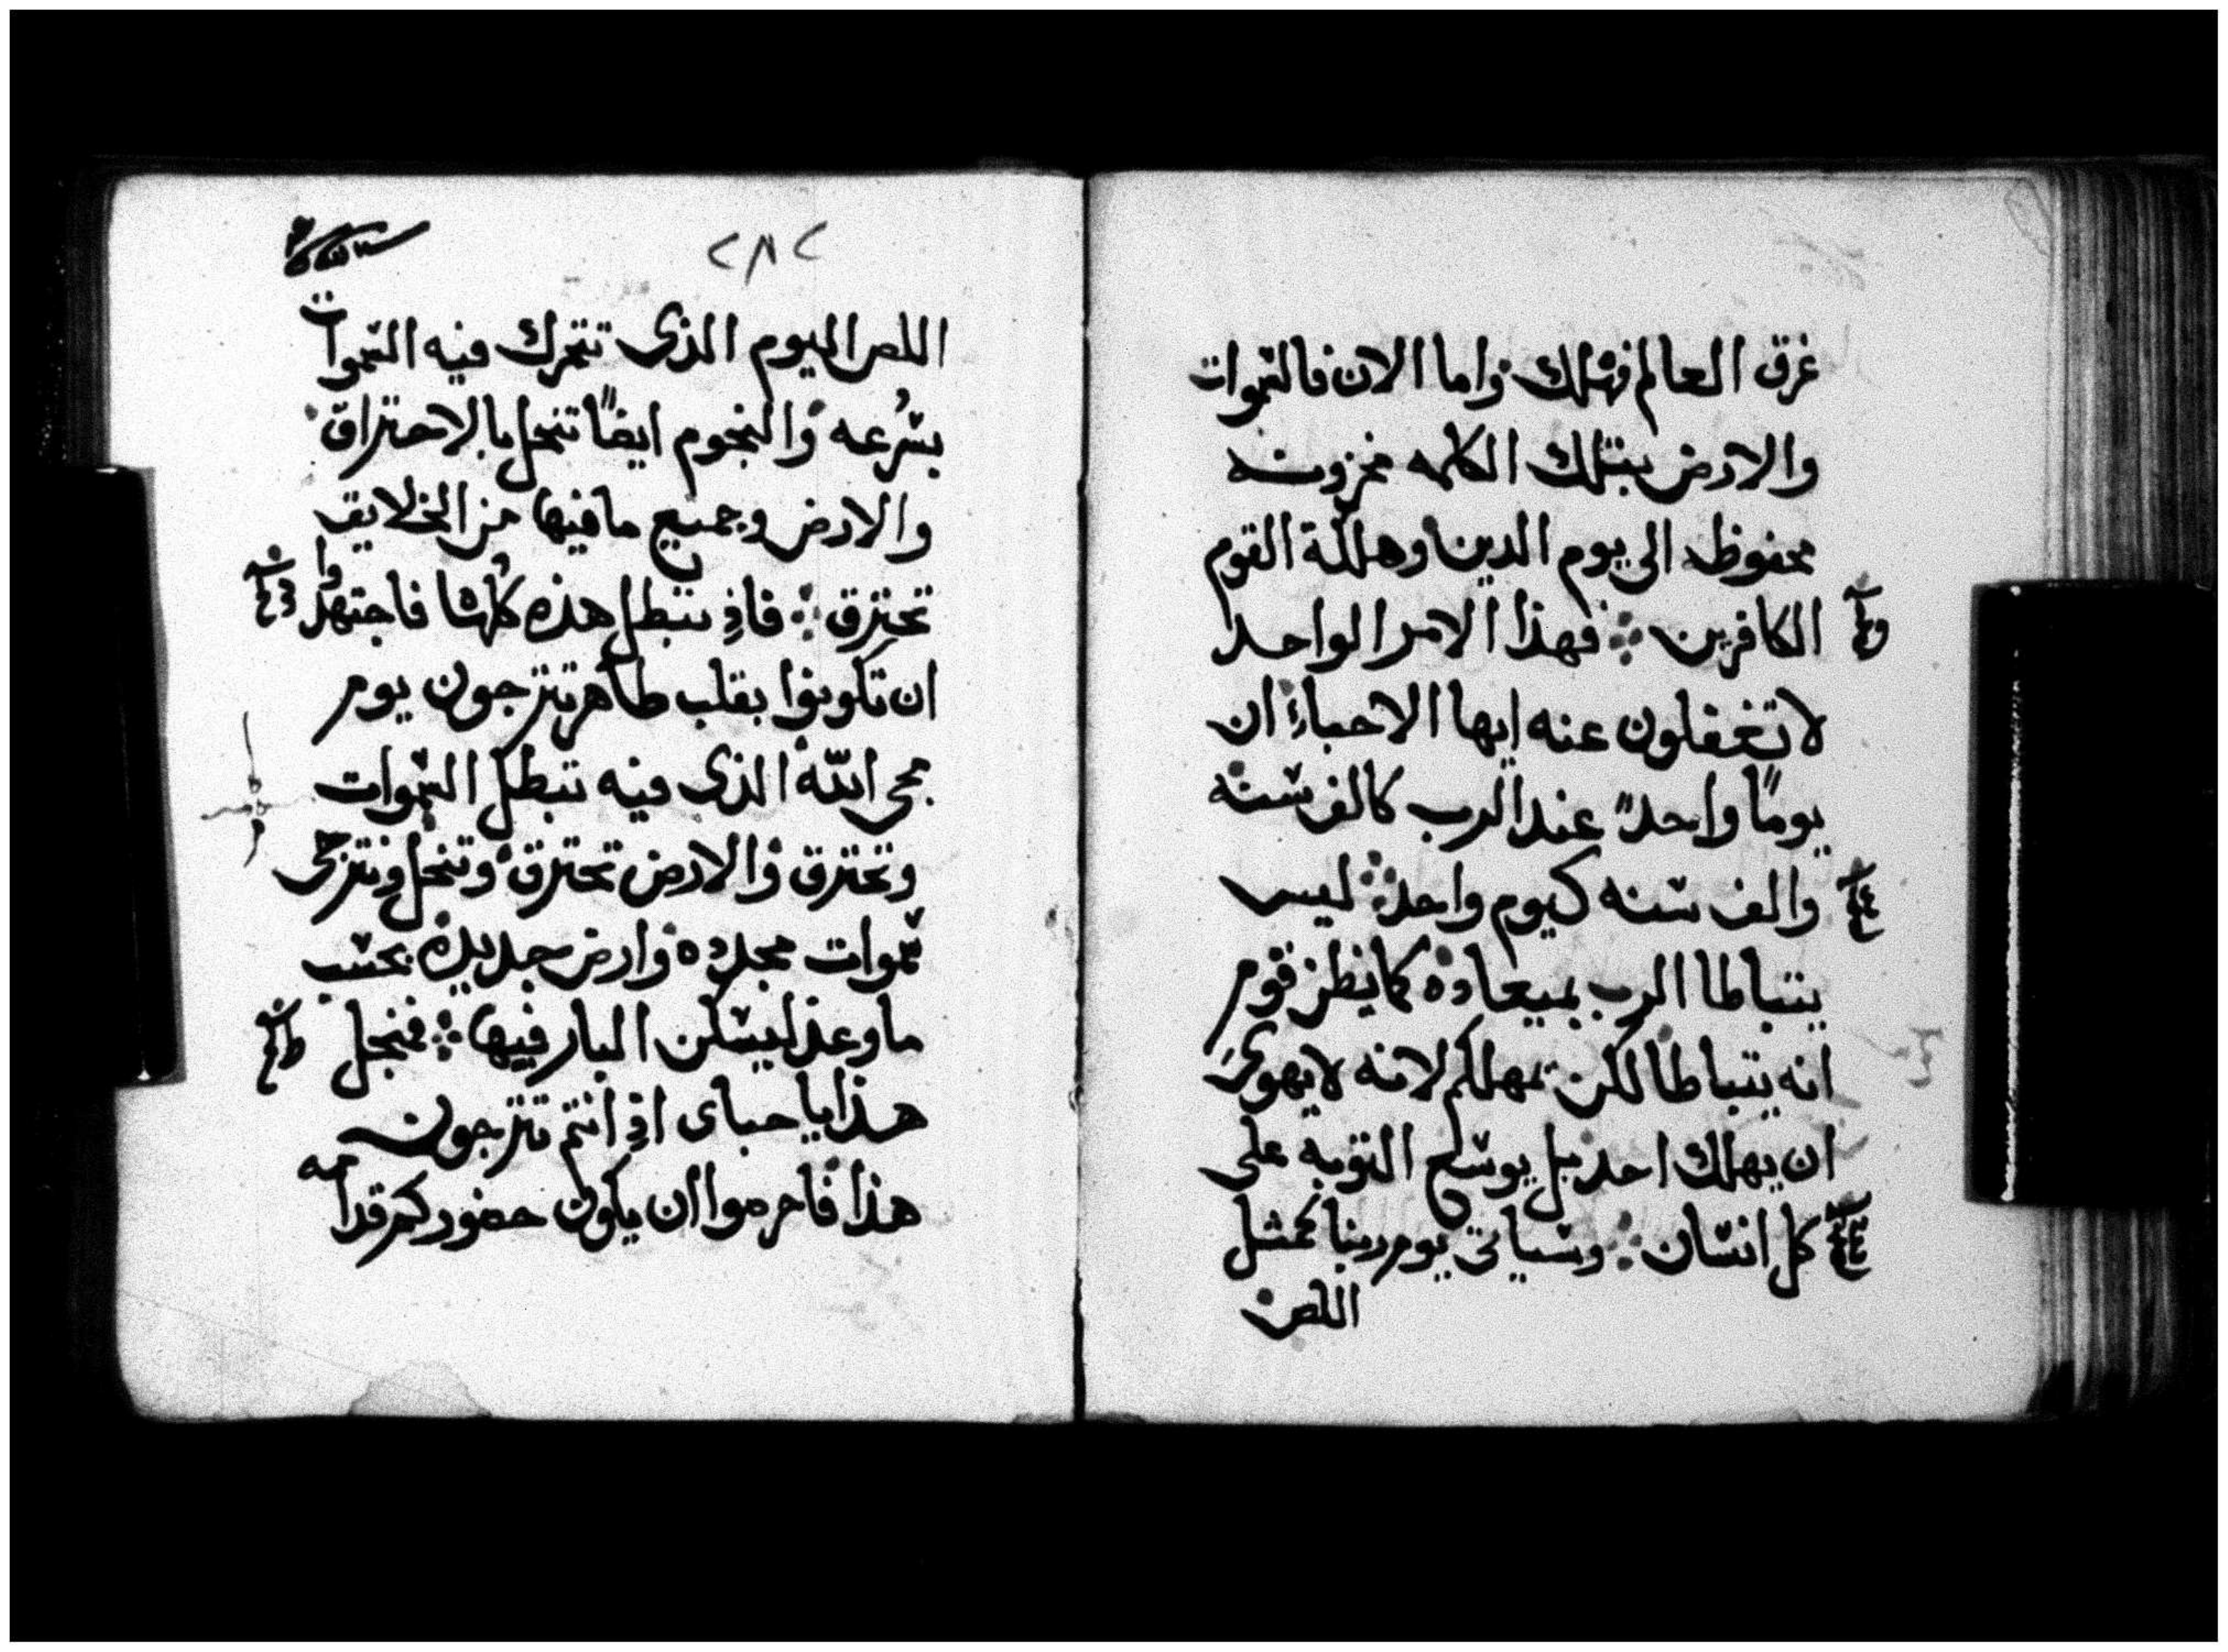 غرق العالم فهلك واما الان فالسموات
والارض بتلك الكلمه مخزونه
محفوظه الى يوم الدين وهلكة القوم
الكافرين فهذا الامر الواحد
لا تغفلون عنه ايها الاحباء ان
يومًا واحدً عند الرب كالف سنه
والف سنه كيوم واحد ليس
يتباطا الرب بميعاده كما يظن قوم
انه يتباطا لكن تمهلكم لانه لا يهوى
ان يهلك احد بل يوسع التوبه على
كل انسان وسياتى يوم ربنا كمثل
اللص
٢٨٢
اللص اليوم الذى تتحرك فيه السموات
بسُرعه والنجوم ايضًا تنحل بالاحتراق
والارض وجميع ما فيها من الخلايق
تحترق فاذ تبطل هذه كُلها فاجتهدُوا
ان تكونوا بقلب طاهر تترجون يوم
مجى الله الذى فيه تبطل السموات
وتحترق والارض تحترق وتنحل ونترجى
سموات مجدده وارض جديده بحسب
ما وعد ليسكن البار فيها فمنجل
هذا يا حباى اذ انتم تترجون
هذا فاحرموا ان يكون حضوركم قدامه